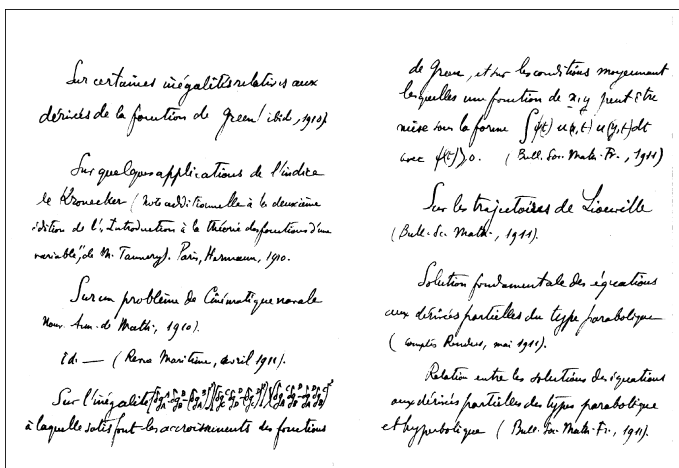 Sur certaines inégalités relatives aux
dérivées de la fonction de Green (ibid., 1910)
Sur quelques applications de l'indice
de Kronecker (Note additionnelle à la deuxième
édition de l'"Introduction à la théorie des fonctions d'une
variable", de M. Tannery). Paris, Hermann, 1910.
Sur un problème de Cinématique navale
Nouv. Ann. de Math., 1910).
Id. — (Revue Maritime, avril 1911).
Sur l'inégalité
à laquelle satisfont les accroissements des fonctions
de Green, et sur les conditions moyennant
lesquelles une fonction de x, y peut être
mise sous la forme ∫ψ(t) u(x,t) u(y,t)dt
avec ψ(t)>0. (Bull. Soc. Math. Fr., 1911)
Sur les trajectoires de Liouville
(Bull. Sc. Math., 1911).
Solution fondamentale des équations
aux dérivées partielles du type parabolique
(Comptes Rendus, mai 1911).
Relation entre les solutions des équations
aux dérivées partielles des types parabolique
et hyperbolique (Bull. Soc. Math. Fr., 1911).